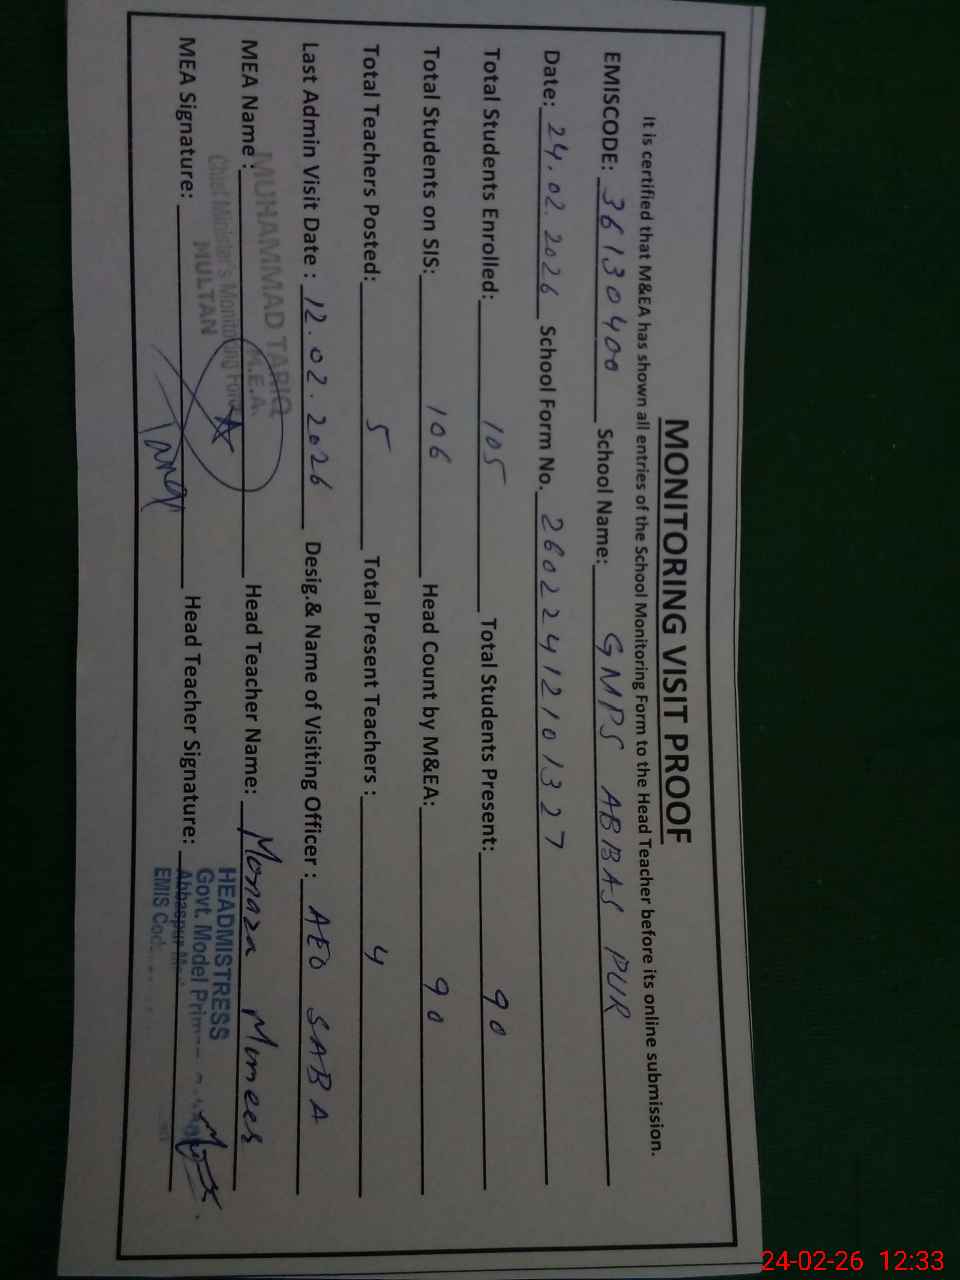 MONITORING VISIT PROOF
It is certified that M&EA has shown all entries of the School Monitoring Form to the Head Teacher before its online submission.
EMISCODE: 36130400 School Name: GMPS ABBAS PUR
Date: 24.02.2026 School Form No. 26022412101327
Total Students Enrolled: 105 Total Students Present: 90
Total Students on SIS: 106 Head Count by M&EA: 90
Total Teachers Posted: 5 Total Present Teachers : 4
Last Admin Visit Date : 12.02.2026 Desig.& Name of Visiting Officer : AEO SABA
MUHAMMAD TARIQ
M.E.A.
MEA Name : Head Teacher Name: Monaza
Chief Minister's Monitoring Force
MULTAN
HEADMISTRESS
Govt. Model
MEA Signature: Tariq Head Teacher Signature:
Abbaspur
EMIS
24-02-26 12:33